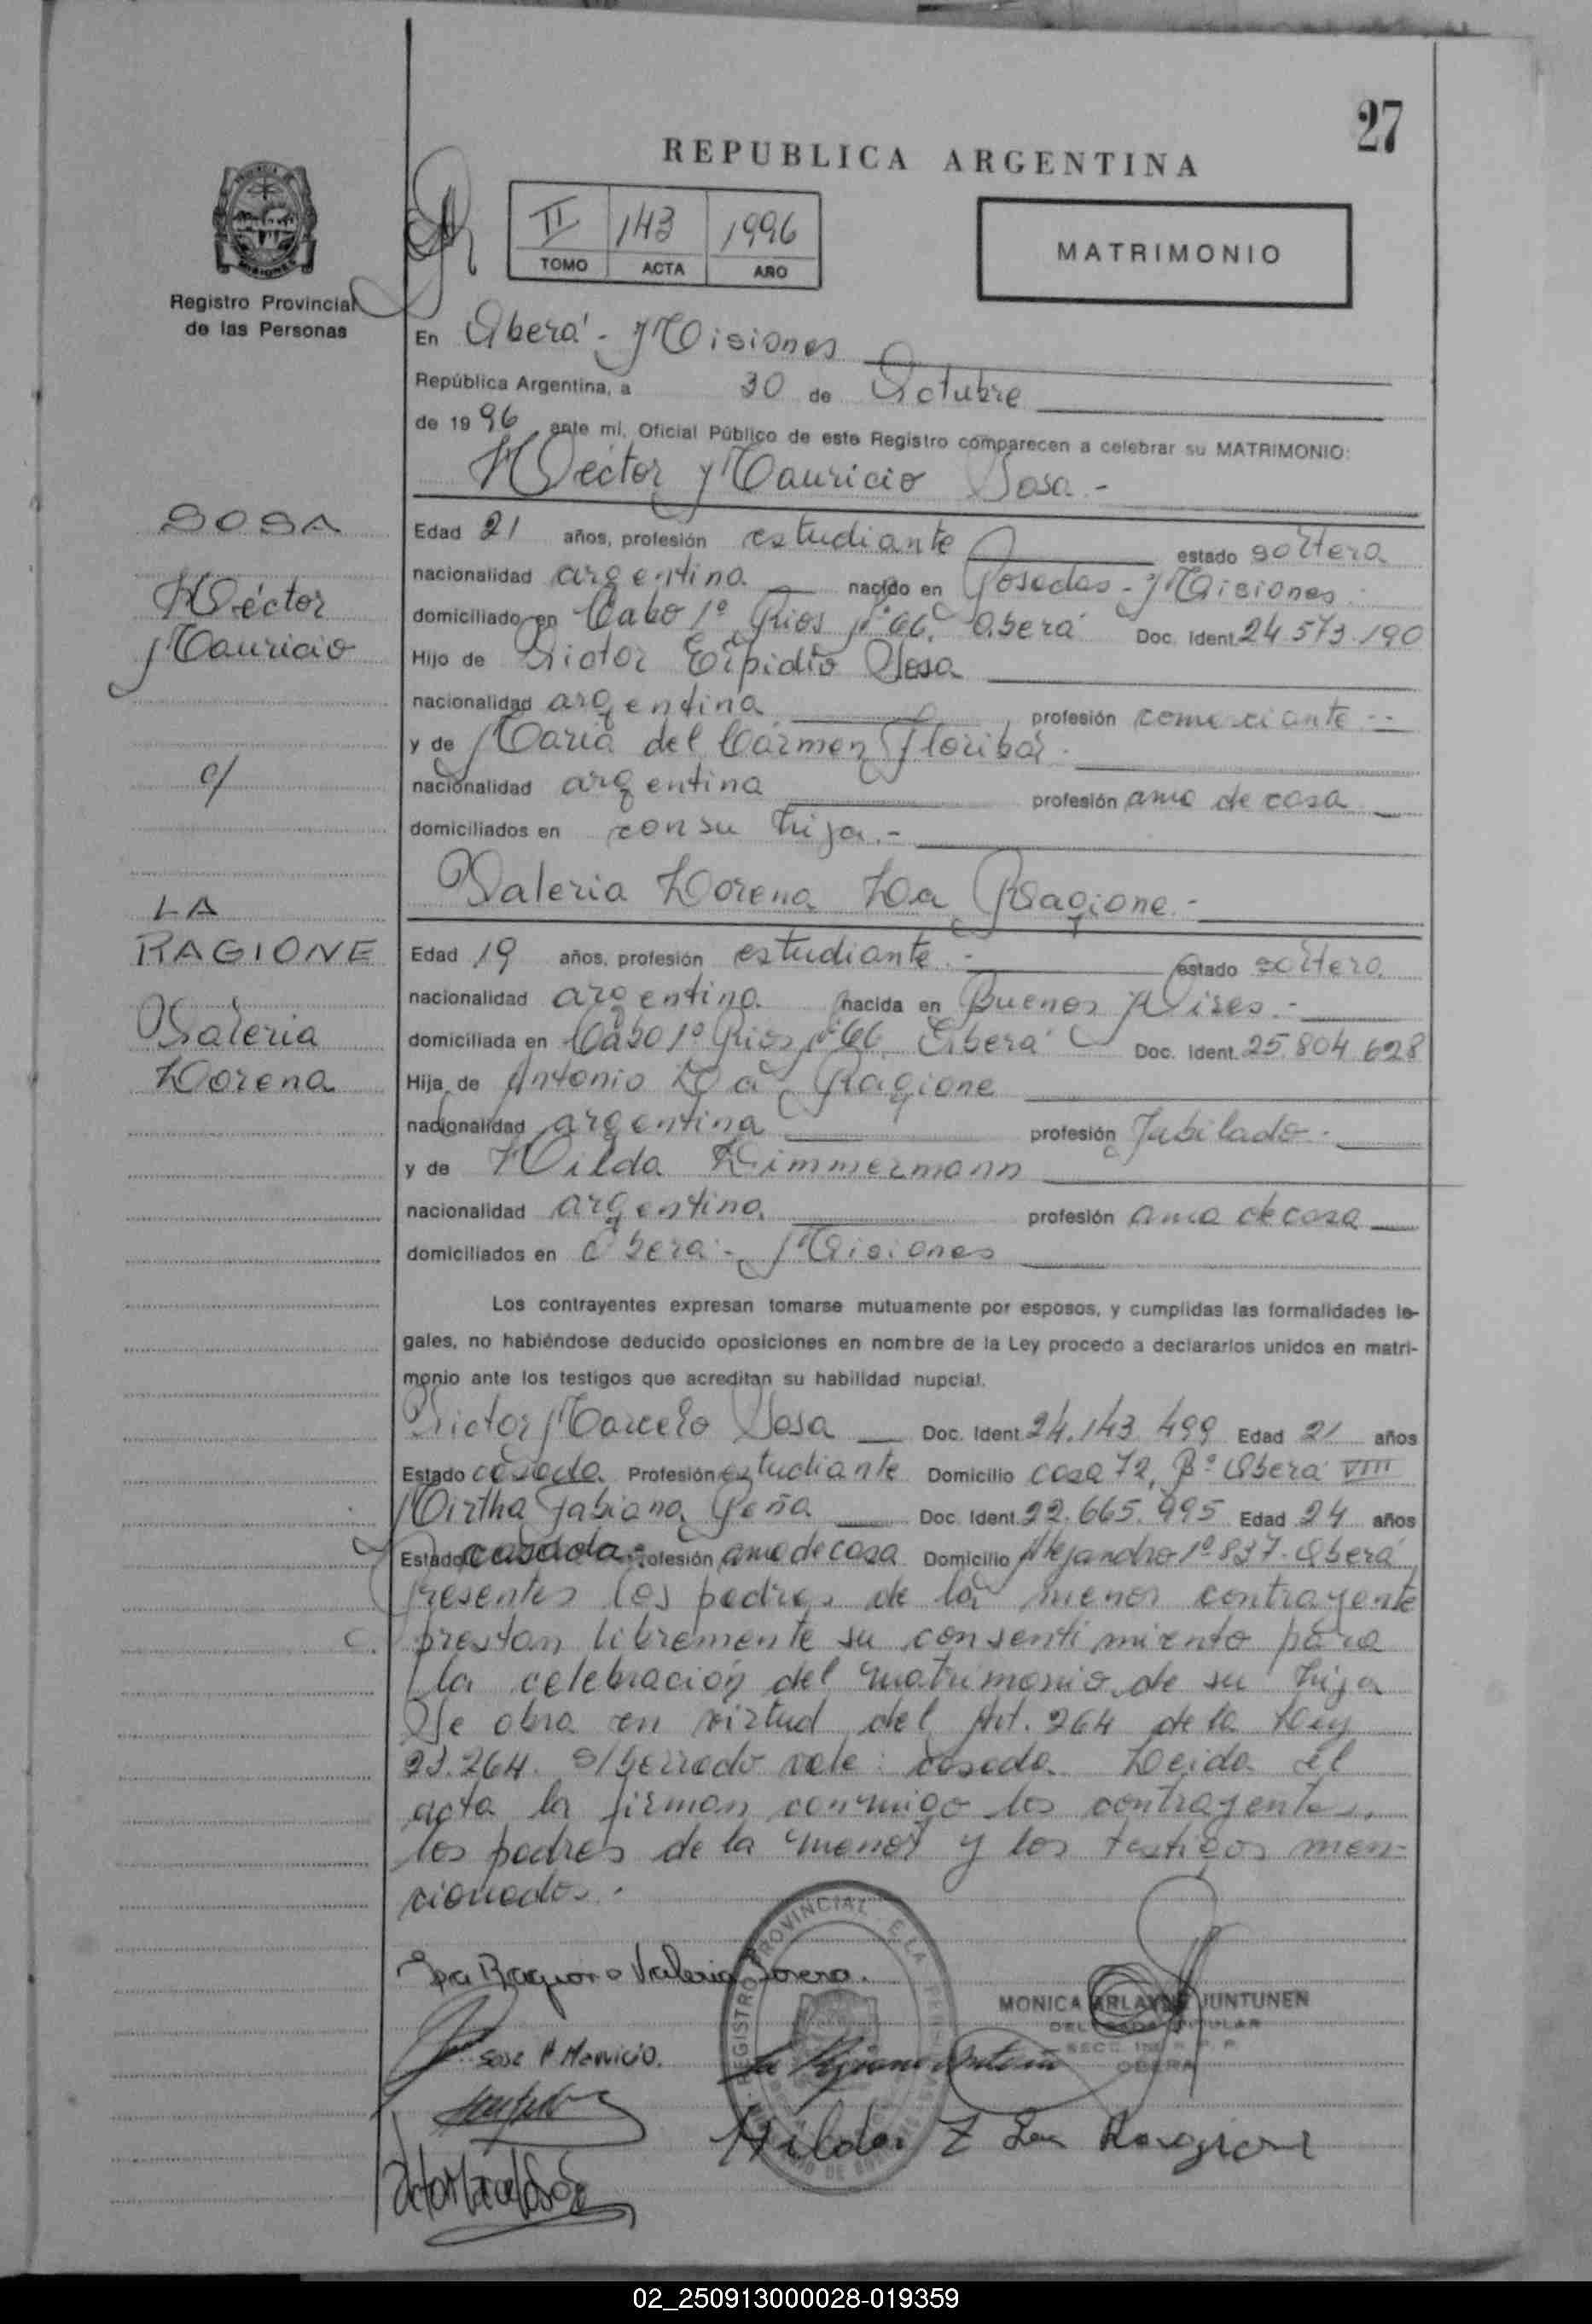 27
REPUBLICA ARGENTINA
II 143 1996
TOMO ACTA AÑO
MATRIMONIO
MISIONES
Registro Provincial
de las Personas
En Oberá - Misiones
República Argentina, a 30 de Octubre
de 1996 ante mi, Oficial Público de este Registro comparecen a celebrar su MATRIMONIO:
Héctor Mauricio Sosa -
SOSA
Héctor
Mauricio
c/
LA
RAGIONE
Valeria
Lorena
Edad 21 años, profesión estudiante estado soltero
nacionalidad argentina nacido en Posadas - Misiones
domiciliado en Cabo 1º Rios nº 66, Oberá Doc. Ident. 24.573.190
Hijo de Victor Elpidio Sosa
nacionalidad argentina profesión comerciante --
y de Maria del Cármen
nacionalidad argentina profesión ama de casa
domiciliados en con su hija.-
Valeria Lorena La Ragione -
Edad 19 años, profesión estudiante - estado soltera
nacionalidad argentina nacida en Buenos Aires -
domiciliada en Cabo 1º Rios nº 66 Oberá Doc. Ident. 25.804.628
Hija de Antonio La Ragione
nacionalidad argentina profesión Jubilado -
y de Hilda Zimmermann
nacionalidad argentina profesión ama de casa
domiciliados en Oberá - Misiones
Los contrayentes expresan tomarse mutuamente por esposos, y cumplidas las formalidades le-
gales, no habiéndose deducido oposiciones en nombre de la Ley procedo a declararlos unidos en matri-
monio ante los testigos que acreditan su habilidad nupcial.
Victor Marcelo Sosa Doc. Ident. 24.143.499 Edad 21 años
Estado casado Profesión estudiante Domicilio casa 72, Bº Oberá VIII
Mirtha Fabiana Peña Doc. Ident. 22.665.995 Edad 24 años
Estado casada Profesión ama de casa Domicilio 1º 837 - Oberá
Presentes los padres de la menor contrayente
prestan libremente su consentimiento para
la celebración del matrimonio de su hija
Se obra en virtud del Art. 264 de la Ley
23.264. S/ borrado vale: casada Leida el
acta la firman conmigo los contrayentes,
los padres de la menor y los testigos men-
cionados.-
La Ragione Valeria Lorena.
Sosa H Mauricio.
REGISTRO PROVINCIAL DE LA
MONICA JUNTUNEN
OBERA
Hilda Z La Ragione
02_250913000028-019359